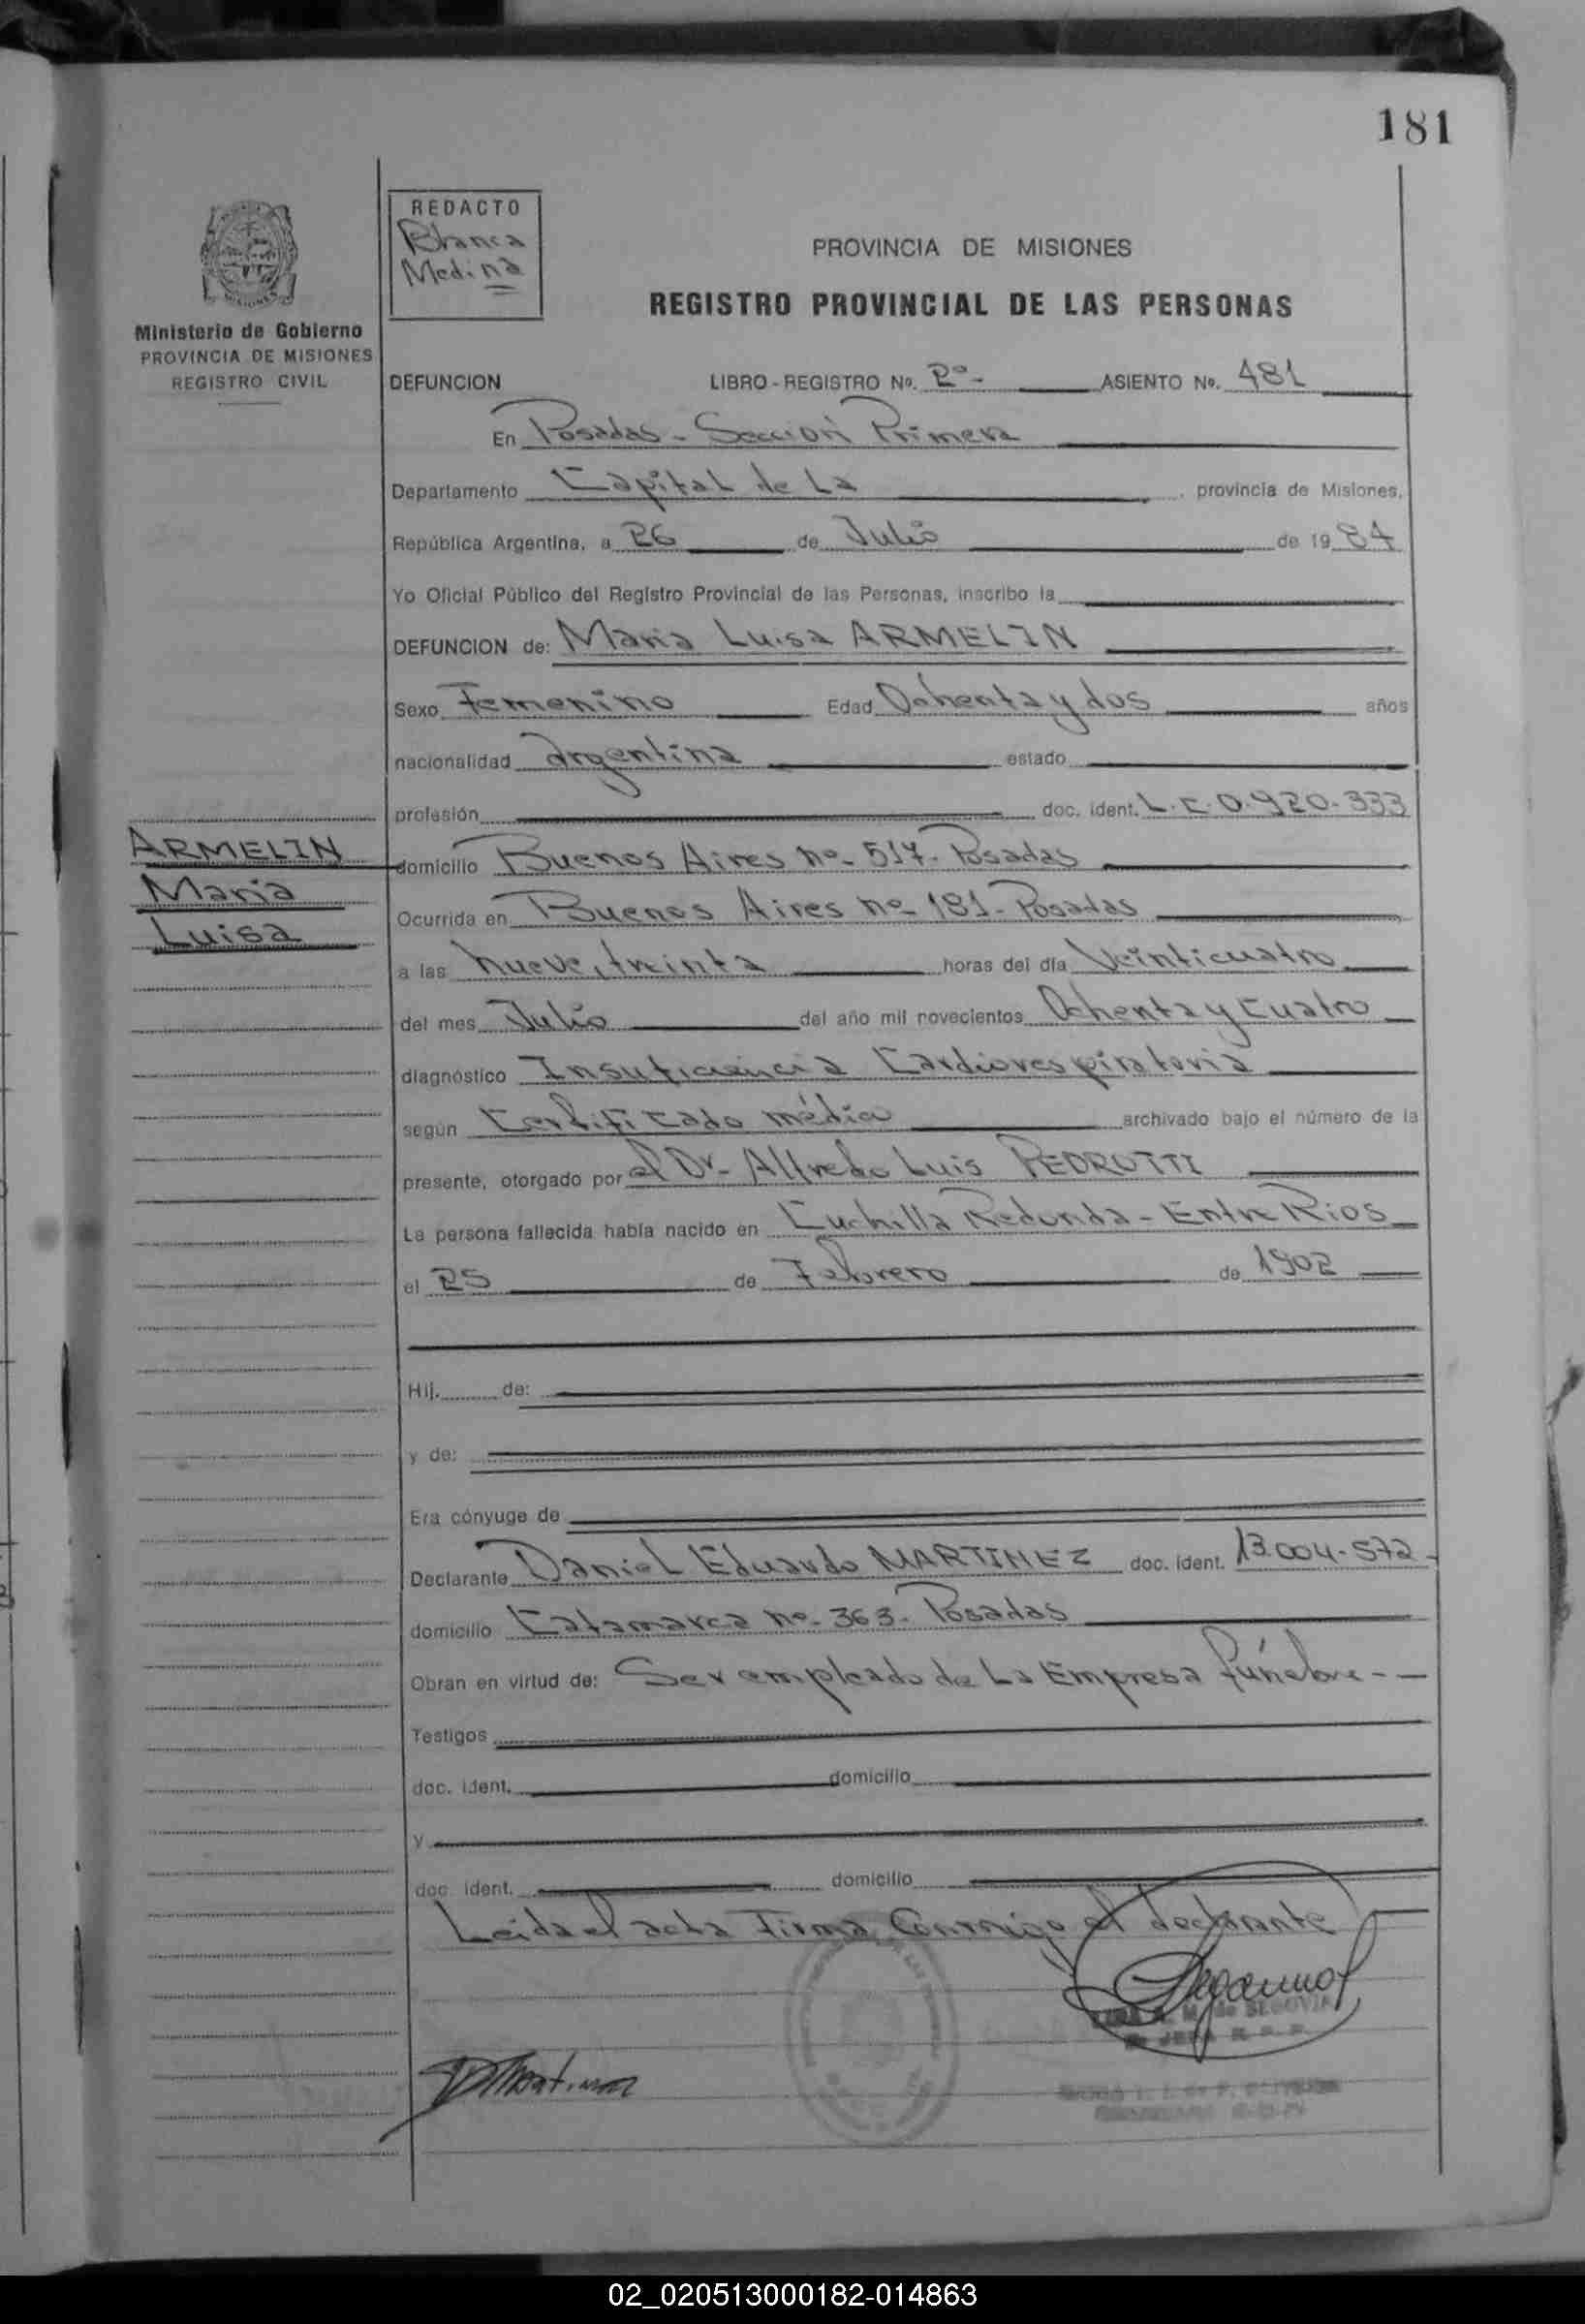 181
REDACTO
Blanca
Medina
PROVINCIA DE MISIONES
REGISTRO PROVINCIAL DE LAS PERSONAS
Ministerio de Gobierno
PROVINCIA DE MISIONES
REGISTRO CIVIL
DEFUNCION LIBRO-REGISTRO No. 2º- ASIENTO No. 481
En Posadas - Sección Primera
Departamento Capital de La provincia de Misiones,
República Argentina, a 26 de Julio de 1984
Yo Oficial Público del Registro Provincial de las Personas, inscribo la
DEFUNCION de: Maria Luisa ARMELIN
Sexo Femenino Edad Ochenta y dos años
nacionalidad argentina estado
profesión doc. ident. L.C. 0.920.333
ARMELIN
Maria
Luisa
domicilio Buenos Aires nº- 517- Posadas
Ocurrida en Buenos Aires nº- 181- Posadas
a las nueve, treinta horas del día Veinticuatro
del mes Julio del año mil novecientos Ochenta y Cuatro
diagnóstico Insuficiencia Cardiorespiratoria
según Certificado médico archivado bajo el número de la
presente, otorgado por el Dr- Alfredo Luis PEDROTTI
La persona fallecida había nacido en Cuchilla Redonda - Entre Rios
el 25 de Febrero de 1902
Hij. de:
y de:
Era cónyuge de
Declarante Daniel Eduardo MARTINEZ doc. ident. 13.004.572-
domicilio Catamarca nº- 363- Posadas
Obran en virtud de: Ser empleado de La Empresa fúnebre - -
Testigos
doc. ident. domicilio
y
doc. ident. domicilio
Leida el acta Firma Conmigo el declarante
M. de SEGOVIA
JEFA R. P. P.
02_020513000182-014863